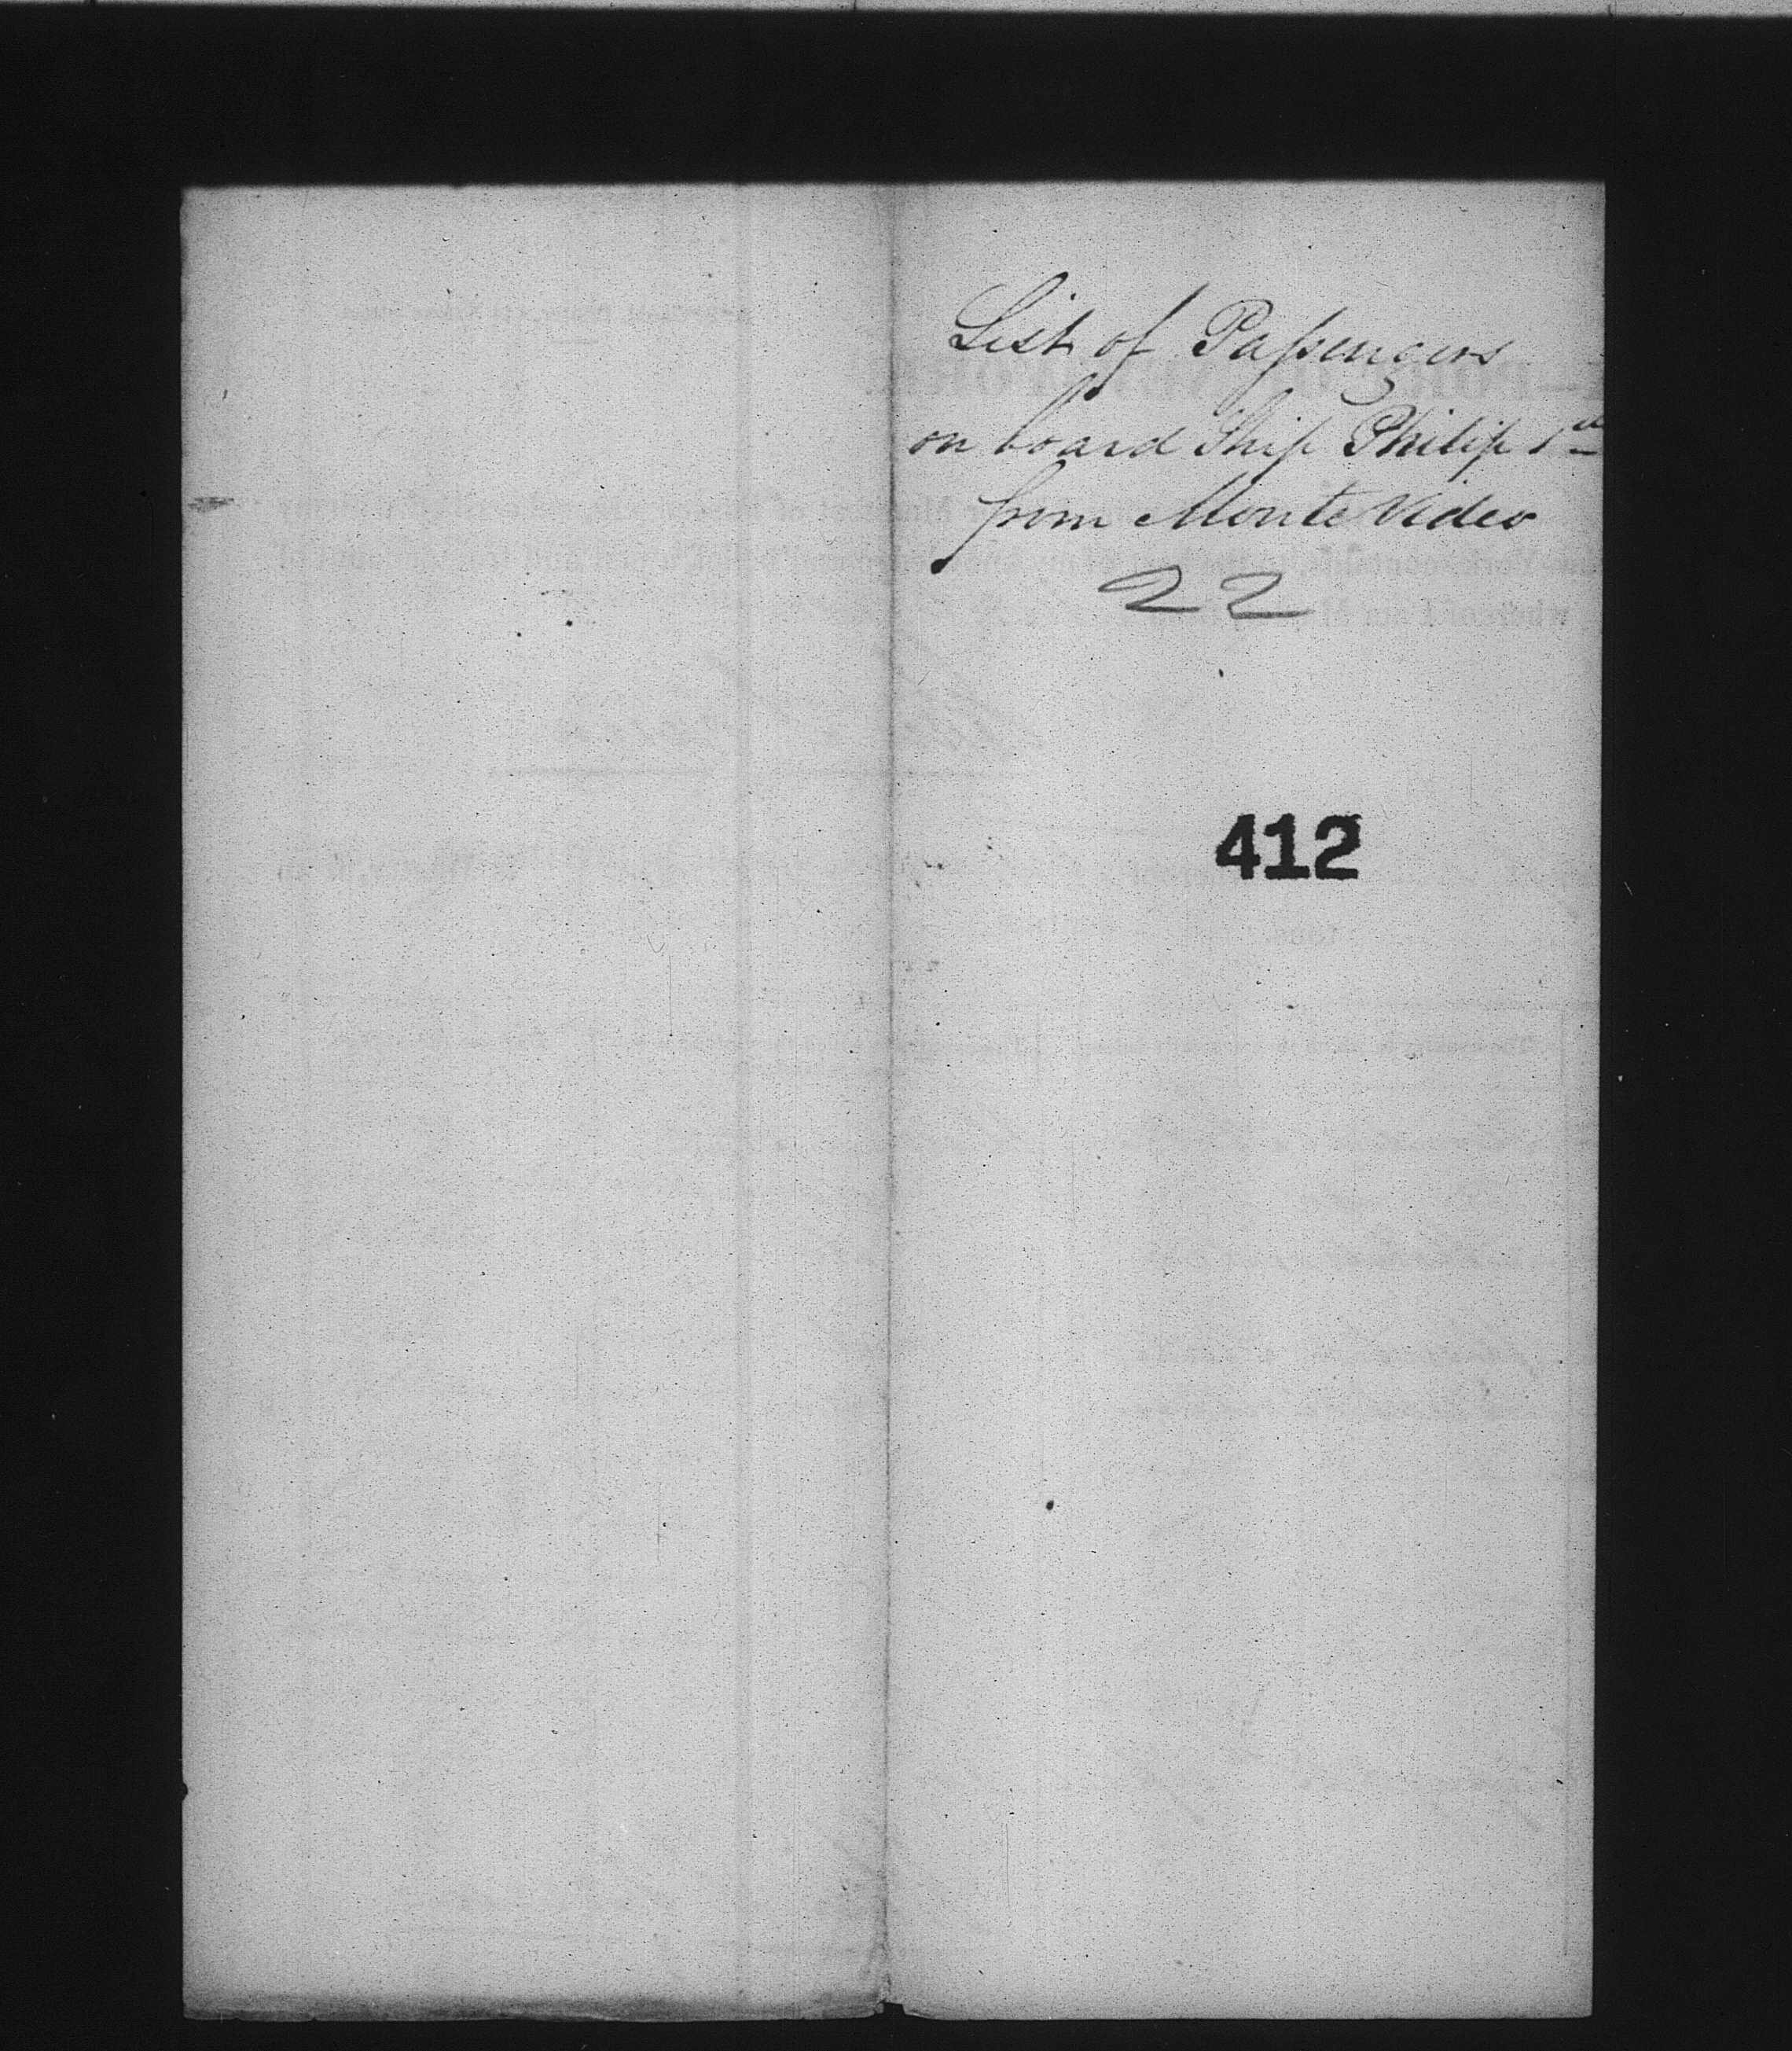 List of Passengers
on board Ship Philip 1st
from Monte Video
22
412